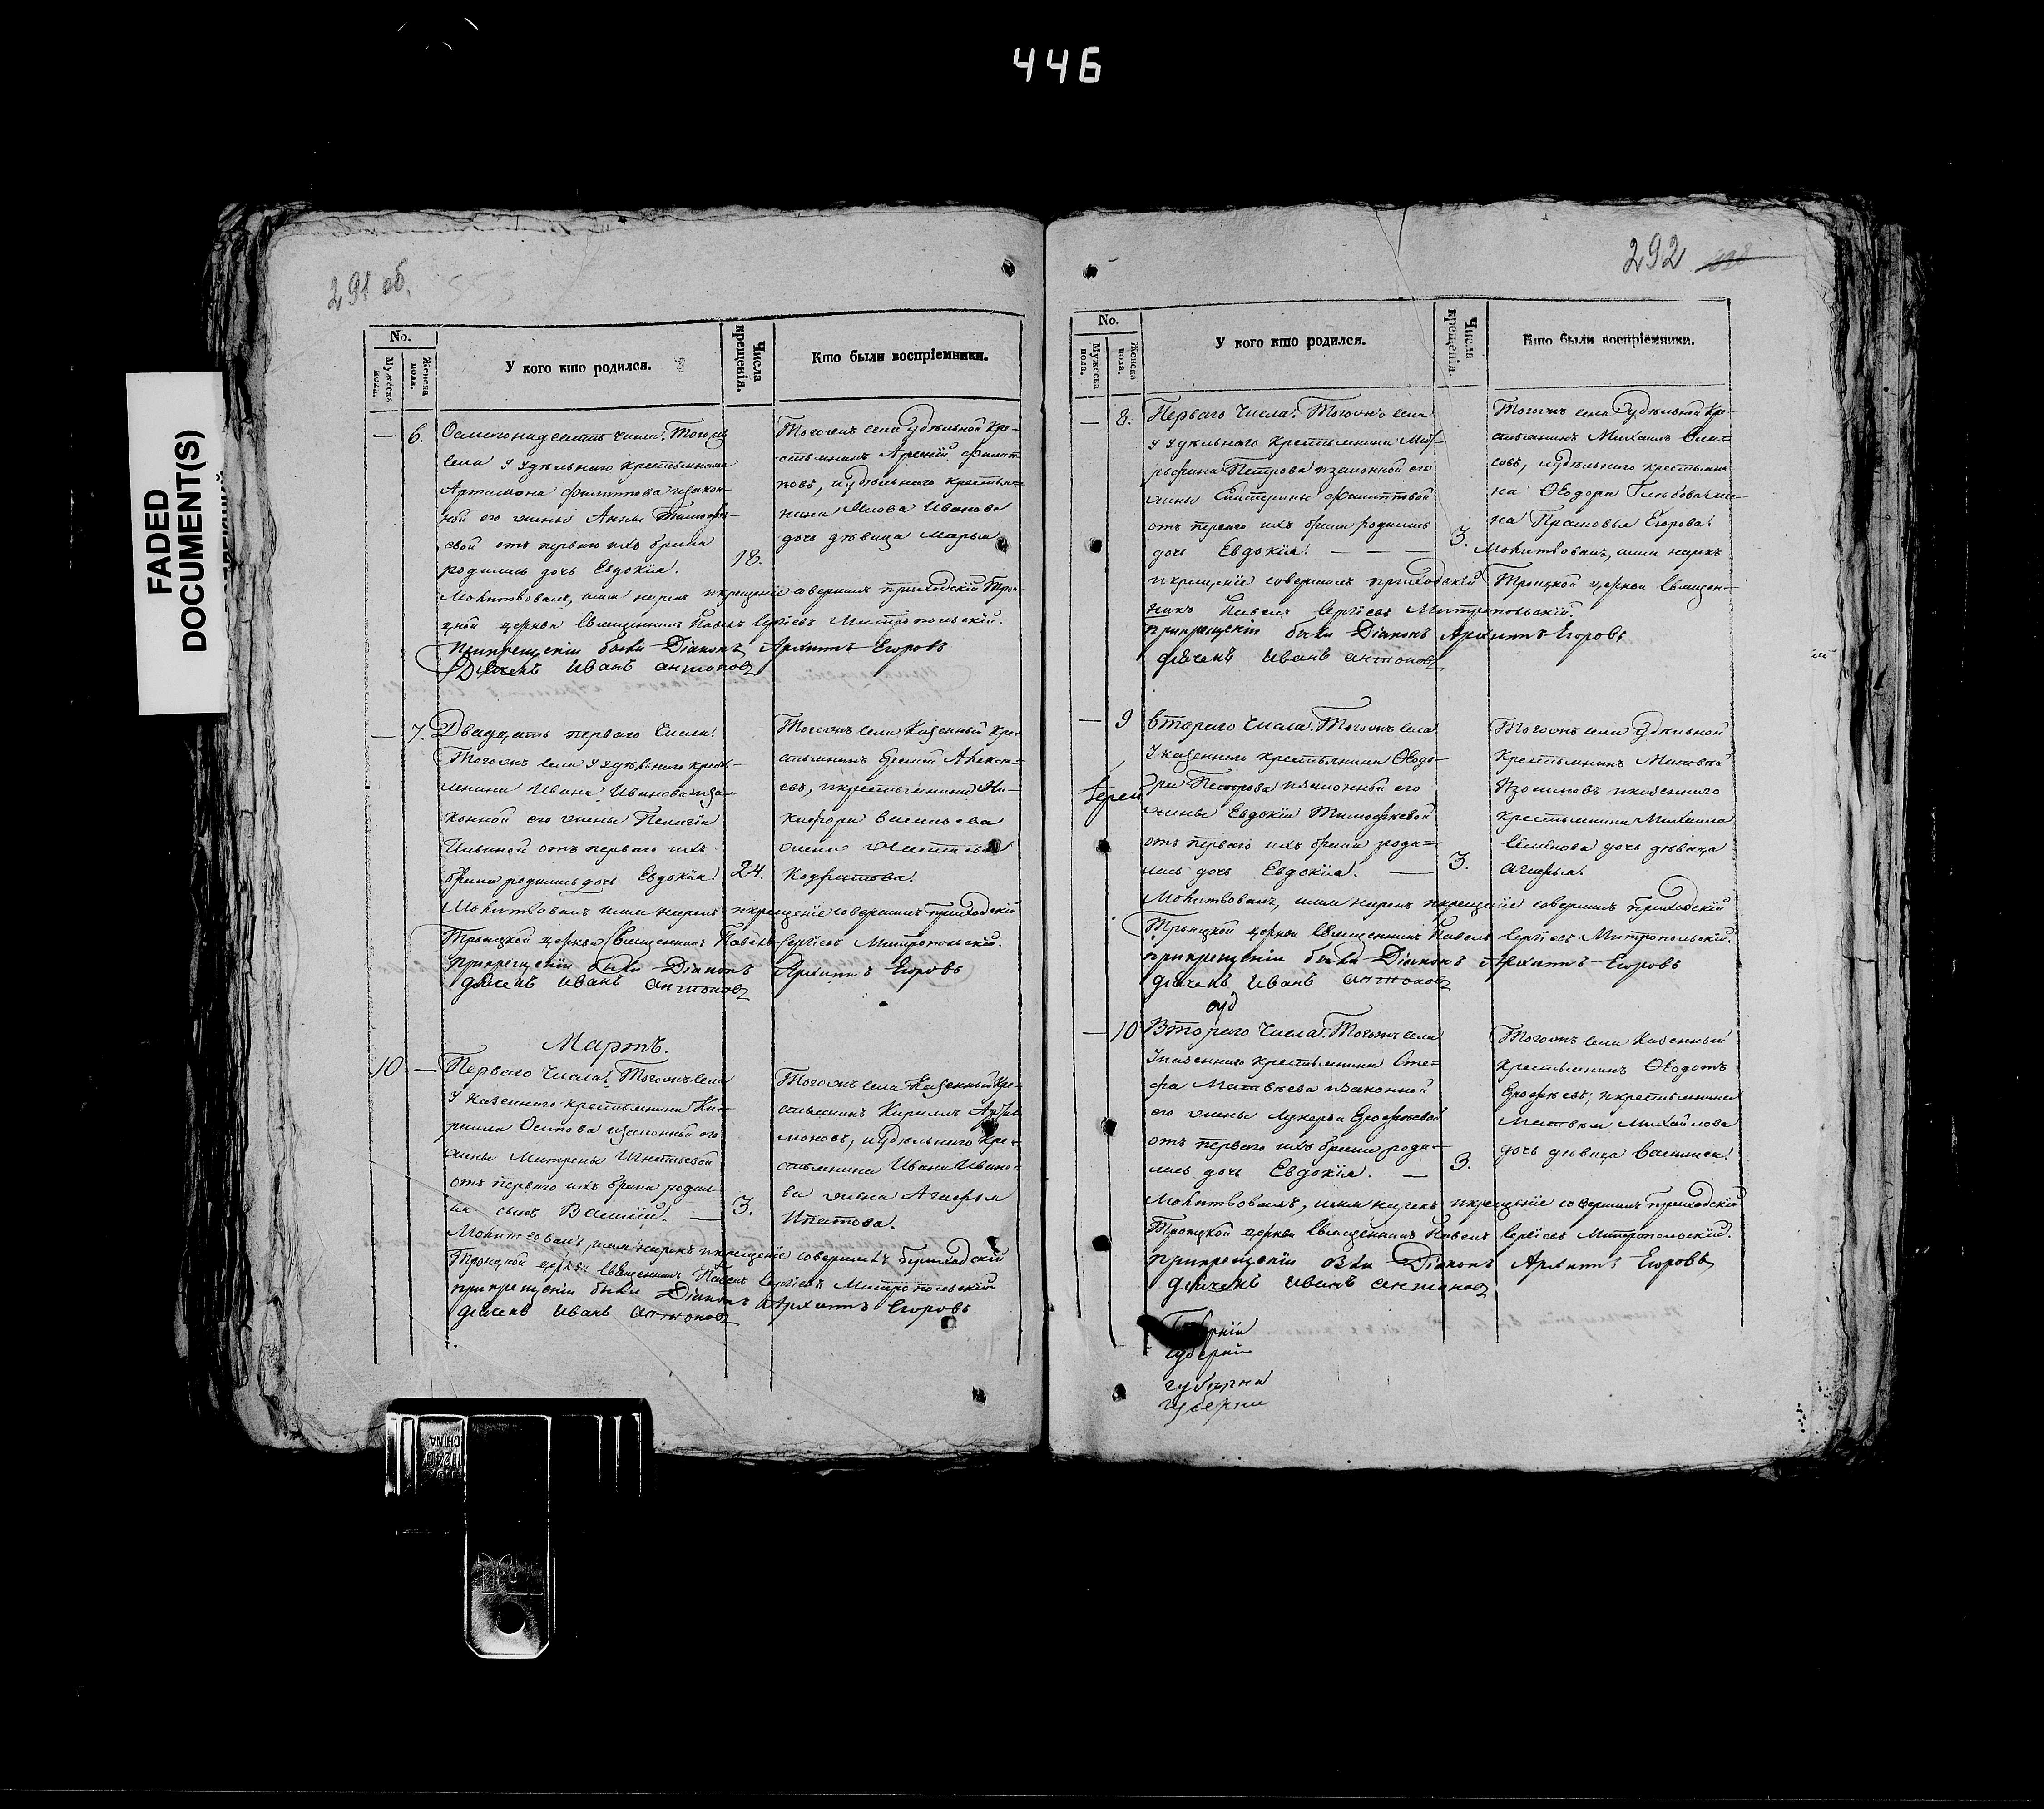 446
FADED
DOCUMENT(S)
291 об.
No.
Мужеска пола.
Женска пола.
У кого кто родился.
Числа крещенія.
Кто были воспріемники.
— 6. Осмогонадесять числа. Тогожъ
села у удѣльнаго крестьянина
Артамона Филиппова изакон-
ной его жены Анны Тимофѣе-
вой отъ перваго ихъ брака
родилась дочь Евдокія.
18.
Тогожъ села удѣльной кре-
стьянинъ Арсеній Филип-
повъ, иудѣльнаго крестья-
нина Иванова
дочь дѣвица Марья
Молитвовалъ, имя нарекъ икрещеніе совершилъ приходскій Трои-
цкой церкви священникъ Павелъ Сергіевъ Митропольскій.
Прикрещеніи были Діаконъ Архиппъ Егоровъ
Дьячекъ Иванъ Антоновъ
— 7. Двадцать перваго числа.
Тогожъ села у удѣльнаго кресть-
янина Ивана Иванова иза-
конной его жены Пелагіи
Ильиной отъ перваго ихъ
брака родилась дочь Евдокія.
24.
Тогожъ села Казенный кре-
стьянинъ Еремей Алексѣ-
евъ, икрестьянина Ни-
кифора Васильева
жена
Молитвовалъ имя нарекъ икрещеніе совершилъ приходскій
Троицкой церкви священникъ Павелъ Сергіевъ Митропольскій.
Прикрещеніи были Діаконъ Архиппъ Егоровъ
дьячекъ Иванъ Антоновъ
Мартъ.
10 — Перваго числа. Тогожъ села
у казеннаго крестьянина Ки-
рилла Осипова изаконной его
жены Матрены Игнатьевой
отъ перваго ихъ брака родил-
ся сынъ Василій. —
3.
Тогожъ села Казенный кре-
стьянинъ Кириллъ Арта-
моновъ, иудѣльнаго кре-
стьянина Ивана Ивано-
ва жена Агафья
Ипатова.
Молитвовалъ, имя нарекъ икрещеніе совершилъ приходскій
Троицкой церкви священникъ Павелъ Сергіевъ Митропольскій
прикрещеніи были Діаконъ Архиппъ Егоровъ
дьячекъ Иванъ Антоновъ
292
No.
Мужеска пола.
Женска пола.
У кого кто родился.
Числа крещенія.
Кто были воспріемники.
— 8. Перваго числа. Тогожъ села
у удѣльнаго крестьянина
Петрова изаконной его
жены Екатерины Филипповой
отъ перваго ихъ брака родилась
дочь Евдокія. — — —
3.
Тогожъ села Удѣльной кре-
стьянинъ Михаилъ
иудѣльнаго крестьяни-
на Ѳеодора Глѣбова же-
на Прасковья Егорова.
Молитвовалъ, имя нарекъ
икрещеніе совершилъ приходскій Троицкой церкви священ-
никъ Павелъ Сергіевъ Митропольскій.
прикрещеніи были Діаконъ Архиппъ Егоровъ
дьячекъ Иванъ Антоновъ
— 9 втораго числа. Тогожъ села
У казеннаго крестьянина Ѳеодо-
ра Петрова изаконной его
жены Евдокіи Тимофѣевой
отъ перваго ихъ брака роди-
лась дочь Евдокія. —
3.
Тогожъ села Удѣльной
крестьянинъ Матвей
Изосимовъ иказеннаго
крестьянина Михаила
Семенова дочь дѣвица
Агафья.
Молитвовалъ, имя нарекъ икрещеніе совершилъ приходскій
Троицкой церкви священникъ Павелъ Сергіевъ Митропольскій.
прикрещеніи были Діаконъ Архиппъ Егоровъ
дьячекъ Иванъ Антоновъ
— 10 Втораго числа. Тогожъ села
Указеннаго крестьянина Сте-
фа Матвѣева изаконной
его жены Лукерьи Ерофѣевой
отъ перваго ихъ брака роди-
лась дочь Евдокія. —
3.
Тогожъ села Казенный
крестьянинъ Ѳеодотъ
Ерофѣевъ, икрестьянина
Матвѣя Михайлова
дочь дѣвица Василиса.
Молитвовалъ, имя нарекъ икрещеніе совершилъ приходскій
Троицкой церкви священникъ Павелъ Сергіевъ Митропольскій.
прикрещеніи были Діаконъ Архиппъ Егоровъ
дьячекъ Иванъ Антоновъ
губерніи
губерни
губерни
CHINA